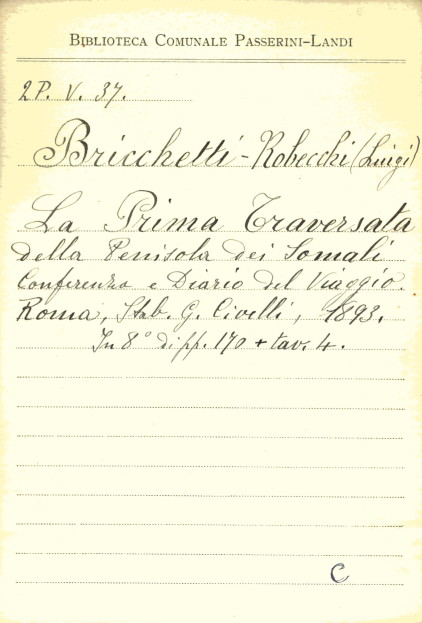 BIBLIOTECA COMUNALE PASSERINI-LANDI
2P. V. 37.
Bricchetti-Robecchi (Luigi)
La Prima Traversata
della Penisola dei Somali
Conferenza e Diario del Viaggio.
Roma, Stab. G. Civelli, 1893.
In 8° di pp. 170 + tav. 4.
C